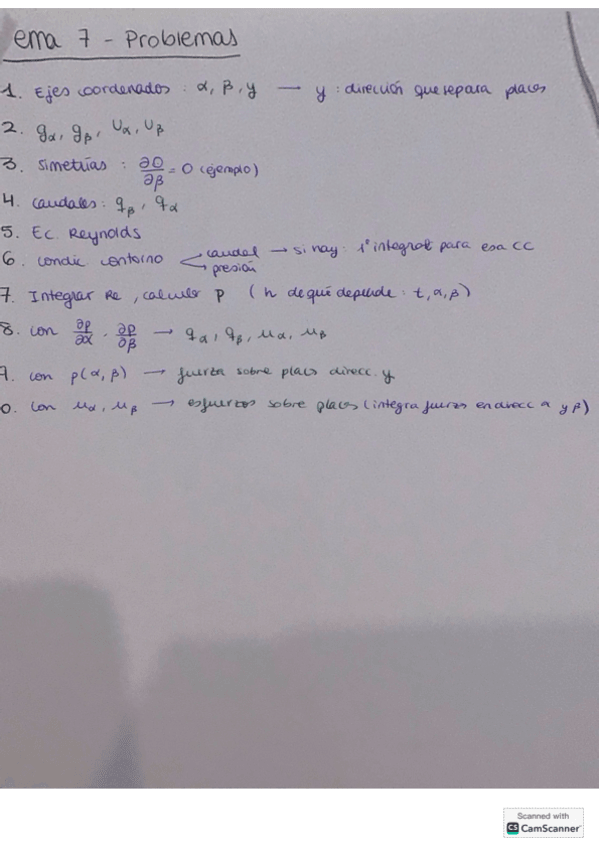 ema 7 - Problemas
1. Ejes coordenados : α, β, y → y : dirección que separa placas
2. gα, gβ, Uα, Uβ
3. simetrías : ∂()/∂β = 0 (ejemplo)
4. caudales : qβ, qα
5. Ec. Reynolds
6. condic contorno < caudal → si hay : 1ª integral para esa CC
presión
7. Integrar Re, calculo P ( h de qué depende : t, α, β )
8. con ∂p/∂α . ∂p/∂β → qα, qβ, uα, uβ
9. con p(α, β) → fuerza sobre placas direcc. y
0. con uα, uβ → esfuerzos sobre placas (integra fuerzas en direcc α y β)
Scanned with
CS CamScanner